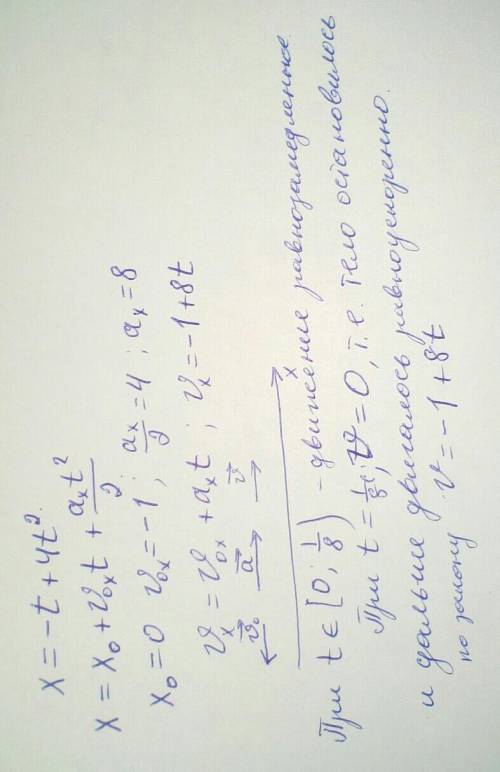 x = -t + 4t²
x = x₀ + v₀ₓt + aₓt²/2
x₀ = 0 v₀ₓ = -1 ; aₓ/2 = 4 ; aₓ = 8
vₓ = v₀ₓ + aₓt ; vₓ = -1 + 8t
v⃗₀ a⃗ v⃗
x
При t ∈ [0; 1/8) - движение равнозамедленное
При t = 1/8 c; v = 0, т.е. тело остановилось
и дальше двигалось равноускоренно.
по закону v = -1 + 8t